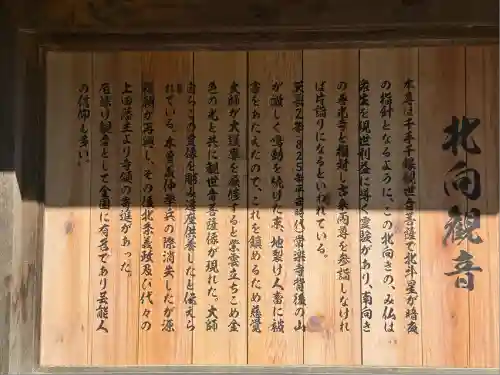 北向観音
本尊は千手千眼観世音菩薩で北斗星が暗夜
の指針となるように、この北向きの、み仏は
衆生を現世利益に導く霊験があり、南向き
の善光寺と相対し古来両尊を参詣しなけれ
ば片詣りになるといわれている。
天長2年(825年平安時代)常楽寺背後の山
が激しく鳴動を続けた末、地裂け人畜に被
害をあたえたので、これを鎮めるため慈覚
大師が大護摩を厳修すると紫雲立ちこめ金
色の光と共に観世音菩薩像が現れた。大師
自らこの尊像を彫み遷座供養したと伝えら
れている。木曽義仲挙兵の際消失したが源
頼朝が再興し、その後北条義政及び代々の
上田藩主より寺領の寄進があった。
厄除け観音として全国に有名であり芸能人
の信仰も多い。